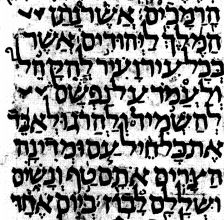 הרמכים אשר נתן
המלך ליהודים אשר
בכל עיר ועיר להקהל
ולעמד על נפשם
להשמיד ולהרג ולאבד
את כל חיל עם ומדינה
הצרים אתם טף ונשים
ושללם לבוז ביום אחד